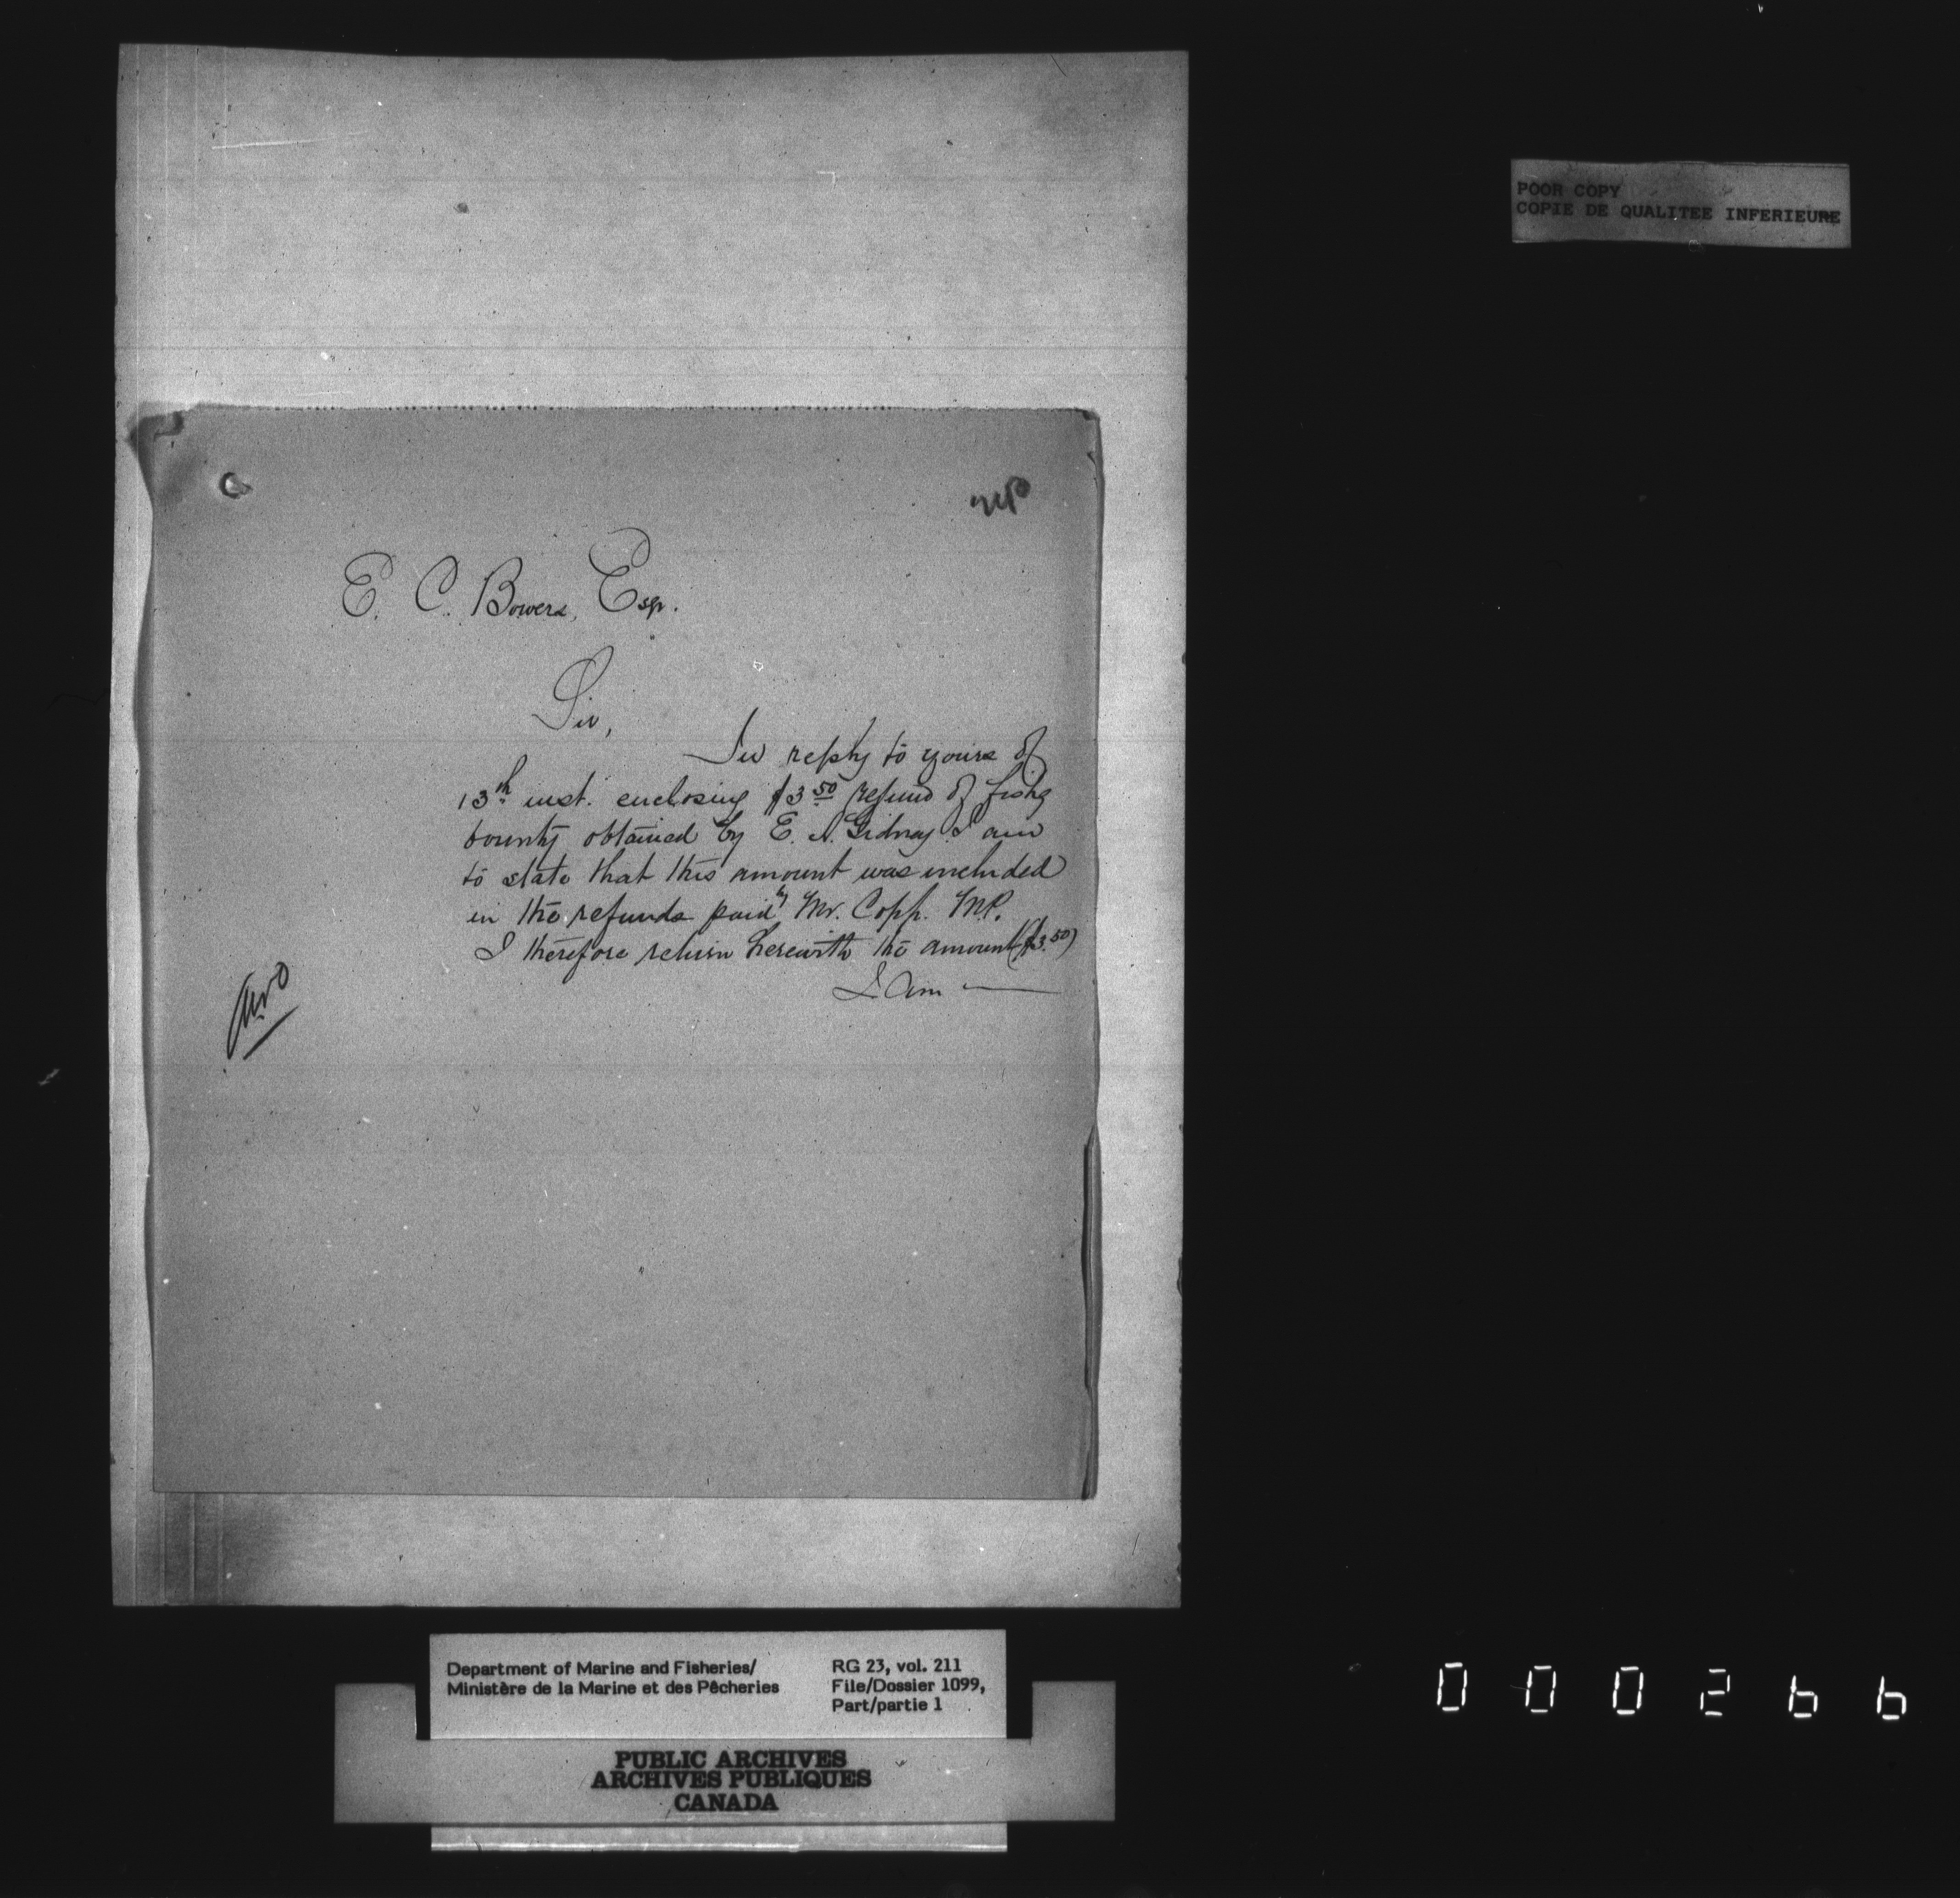 POOR COPY
COPIE DE QUALITEE INFERIEURE
E. C. Bowers, Esqr.
Sir,
In reply to yours of
13th inst. enclosing $3.50 refund of fishg
bounty obtained by E. A. Gidney I am
to state that this amount was included
in the refunds paid by Mr. Copp. M.P.
I therefore return herewith the amount ($3.50)
I am
Department of Marine and Fisheries/
Ministère de la Marine et des Pêcheries
RG 23, vol. 211
File/Dossier 1099,
Part/partie 1
PUBLIC ARCHIVES
ARCHIVES PUBLIQUES
CANADA
000266